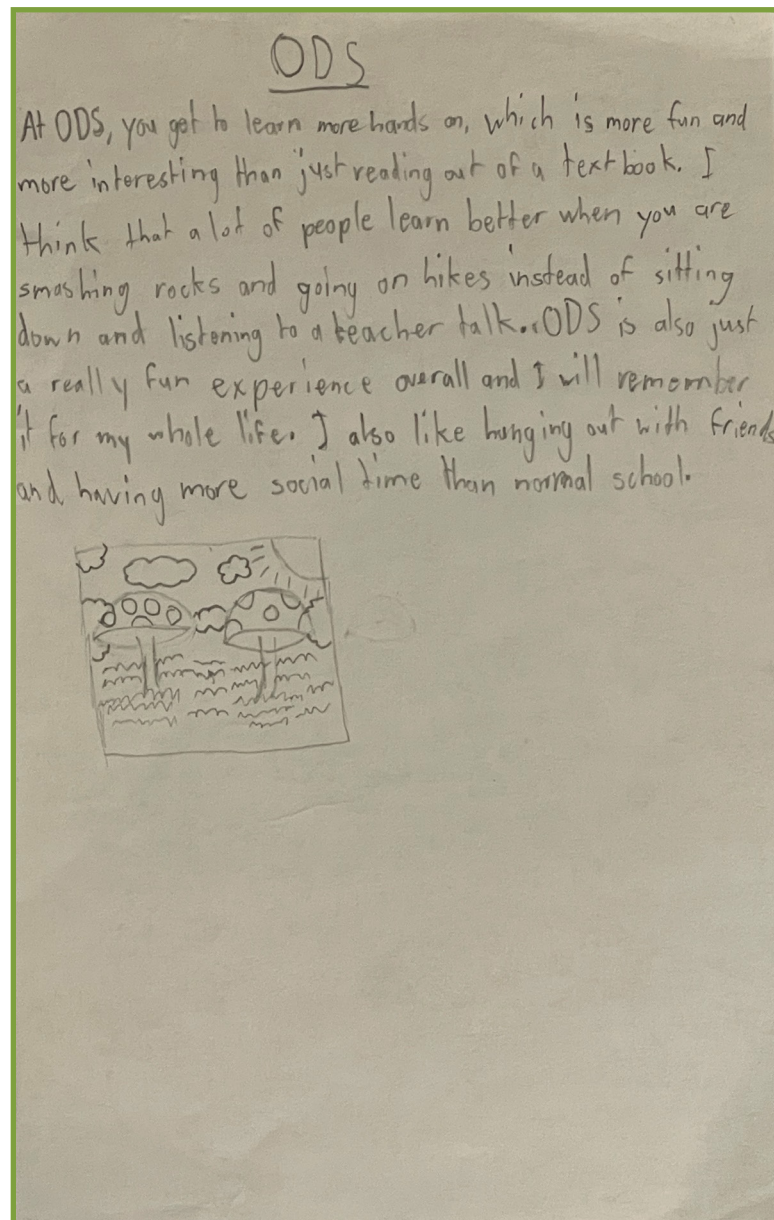 ODS
At ODS, you get to learn more hands on, which is more fun and
more interesting than just reading out of a textbook. I
think that a lot of people learn better when you are
smashing rocks and going on hikes instead of sitting
down and listening to a teacher talk. ODS is also just
a really fun experience overall and I will remember
it for my whole life. I also like hanging out with friends
and having more social time than normal school.